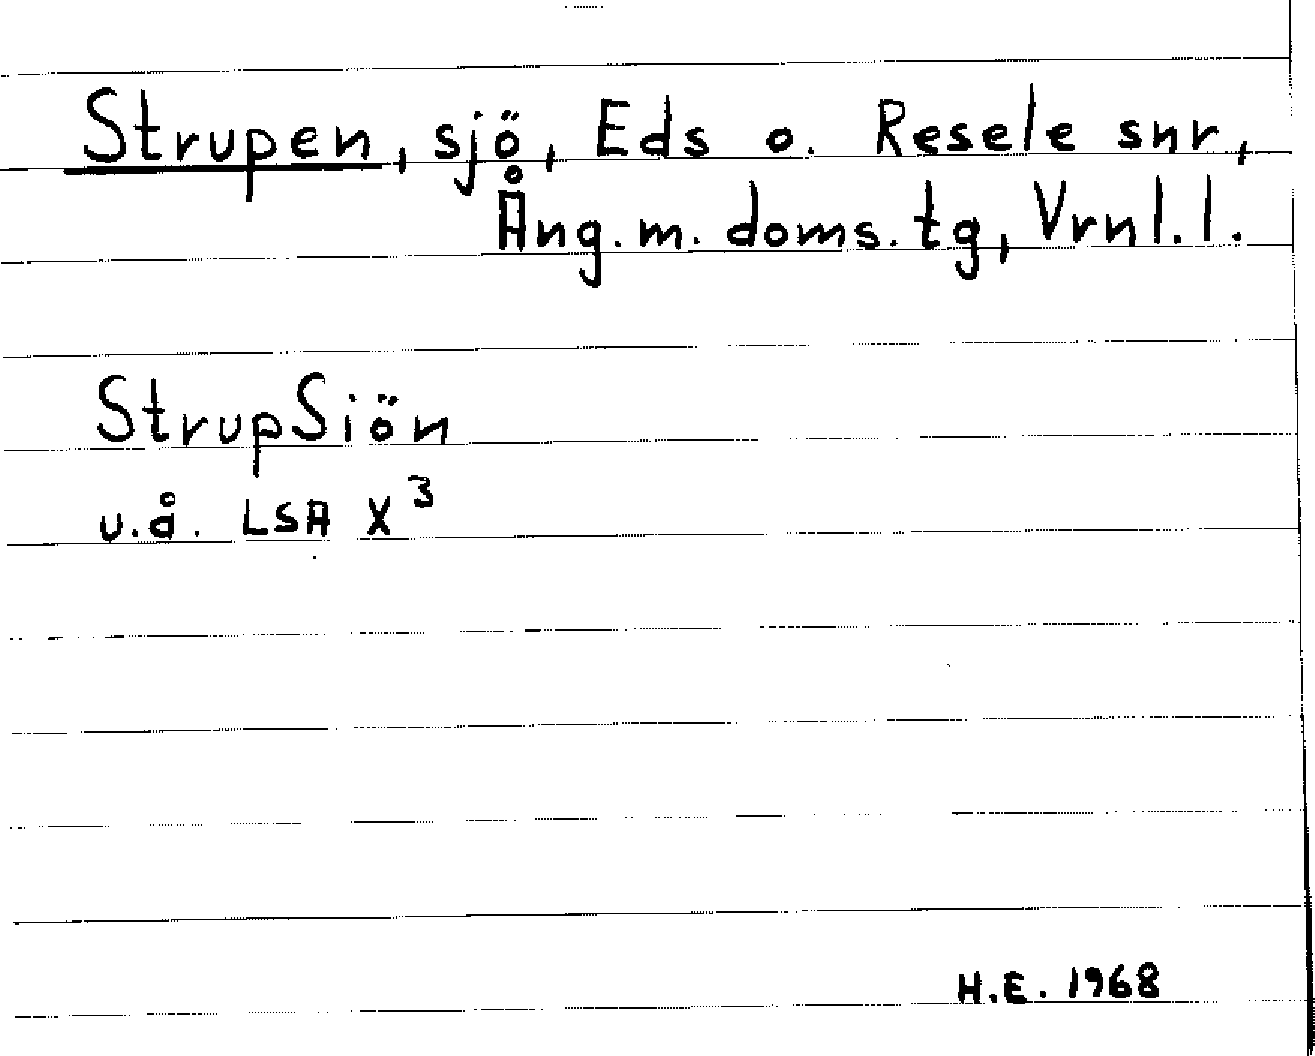 Strupen, sjö, Eds o. Resele snr,
Ång.m. doms.tg, Vrnl.l.
StrupSiön
u.å. LSA X³
H.E. 1968